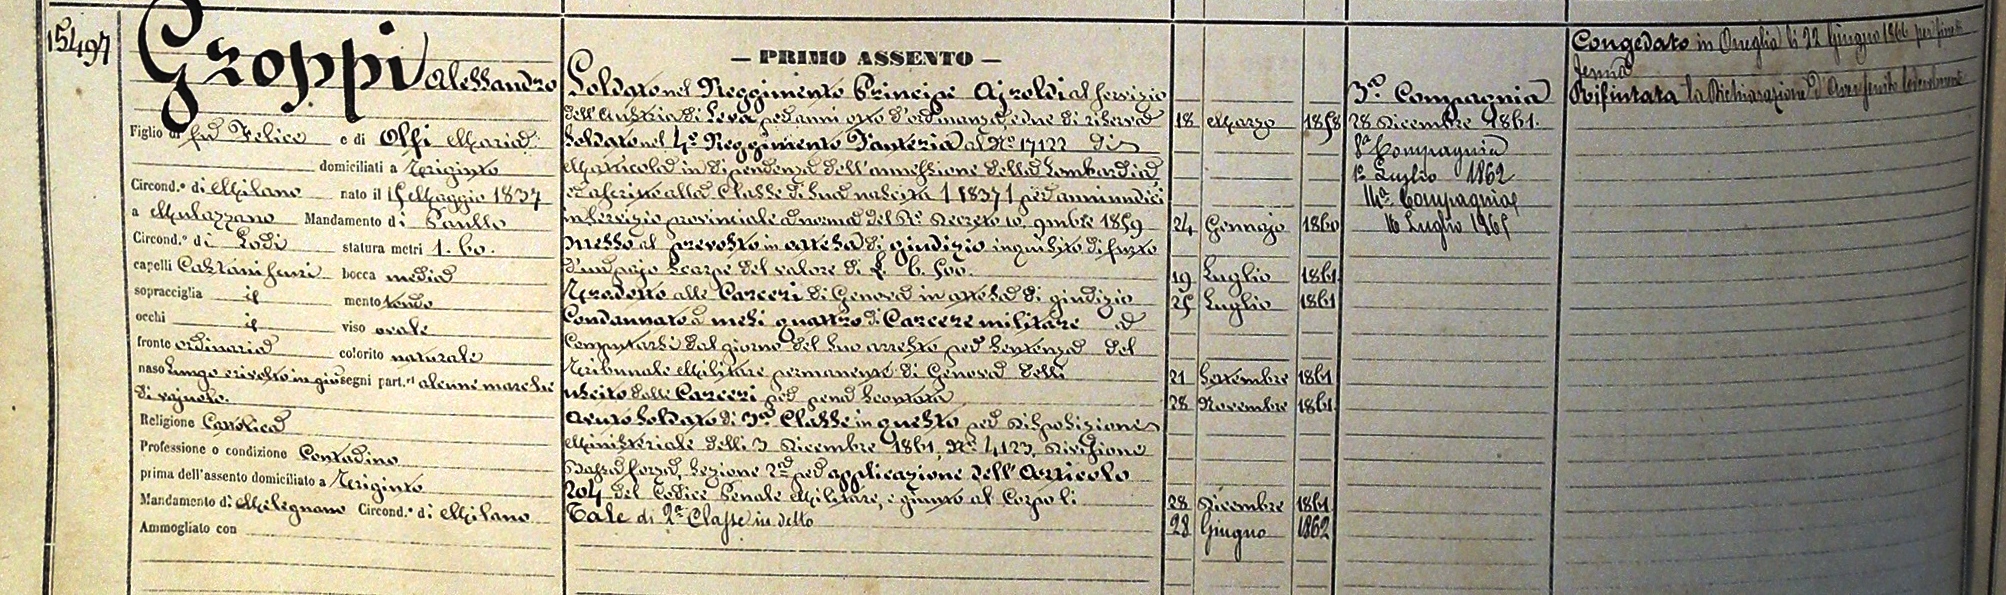 15497
Groppi Alessandro
Figlio di fu Felice e di Olfi Maria
domiciliati a Triginto
Circond.º di Milano nato il 15 Maggio 1837
a Mulazzano Mandamento di Paullo
Circond.º di Lodi statura metri 1.60.
capelli Castani scuri bocca media
sopracciglia id mento tondo
occhi id viso ovale
fronte ordinaria colorito naturale
naso lungo e rivolto in giù segni part.ri alcune marche
di vajuolo.
Religione Cattolica
Professione o condizione Contadino
prima dell'assento domiciliato a Triginto
Mandamento di Melegnano Circond.º di Milano
Ammogliato con
— PRIMO ASSENTO —
Soldato nel Reggimento Principe Ajroldi al servizio
dell'Austria di Leva per anni otto d'ordinanza e due di riserva 18 Marzo 1858
Soldato nel 4º Reggimento Fanteria al Nº 17122 di
Matricola in dipendenza dell'annessione della Lombardia
ed ascritto alla Classe di sua nascita (1837) per anni undici
in servizio provinciale a norma del Rº Decreto 10 9mbre 1859 24 Gennajo 1860
Messo al prevosto in attesa di giudizio inquisito di furto
d'un pajo scarpe del valore di £. 6.500. 19 Luglio 1861
Tradotto alle Carceri di Genova in attesa di giudizio 25 Luglio 1861
Condannato a mesi quattro di Carcere militare a
computarsi dal giorno del suo arresto per sentenza del
Tribunale Militare permanente di Genova delli 21 Settembre 1861
uscito dalle Carceri per pena scontata 28 Novembre 1861
Avuto Soldato di 3ª Classe in questo per disposizione
Ministeriale delli 3 Dicembre 1861, Nº 4123, Divisione
Bassa forza, Sezione 2ª per applicazione dell'Articolo
204 del Codice Penale Militare, e giunto al Corpo li 28 Dicembre 1861
Tale di 2ª Classe in detto 28 Giugno 1862
3ª Compagnia
28 Dicembre 1861.
8ª Compagnia
1º Luglio 1862
14ª Compagnia
16 Luglio 1865
Congedato in Oneglia li 22 Giugno 1866 per fine
ferma
Rifiutata la Dichiarazione d'Aver servito